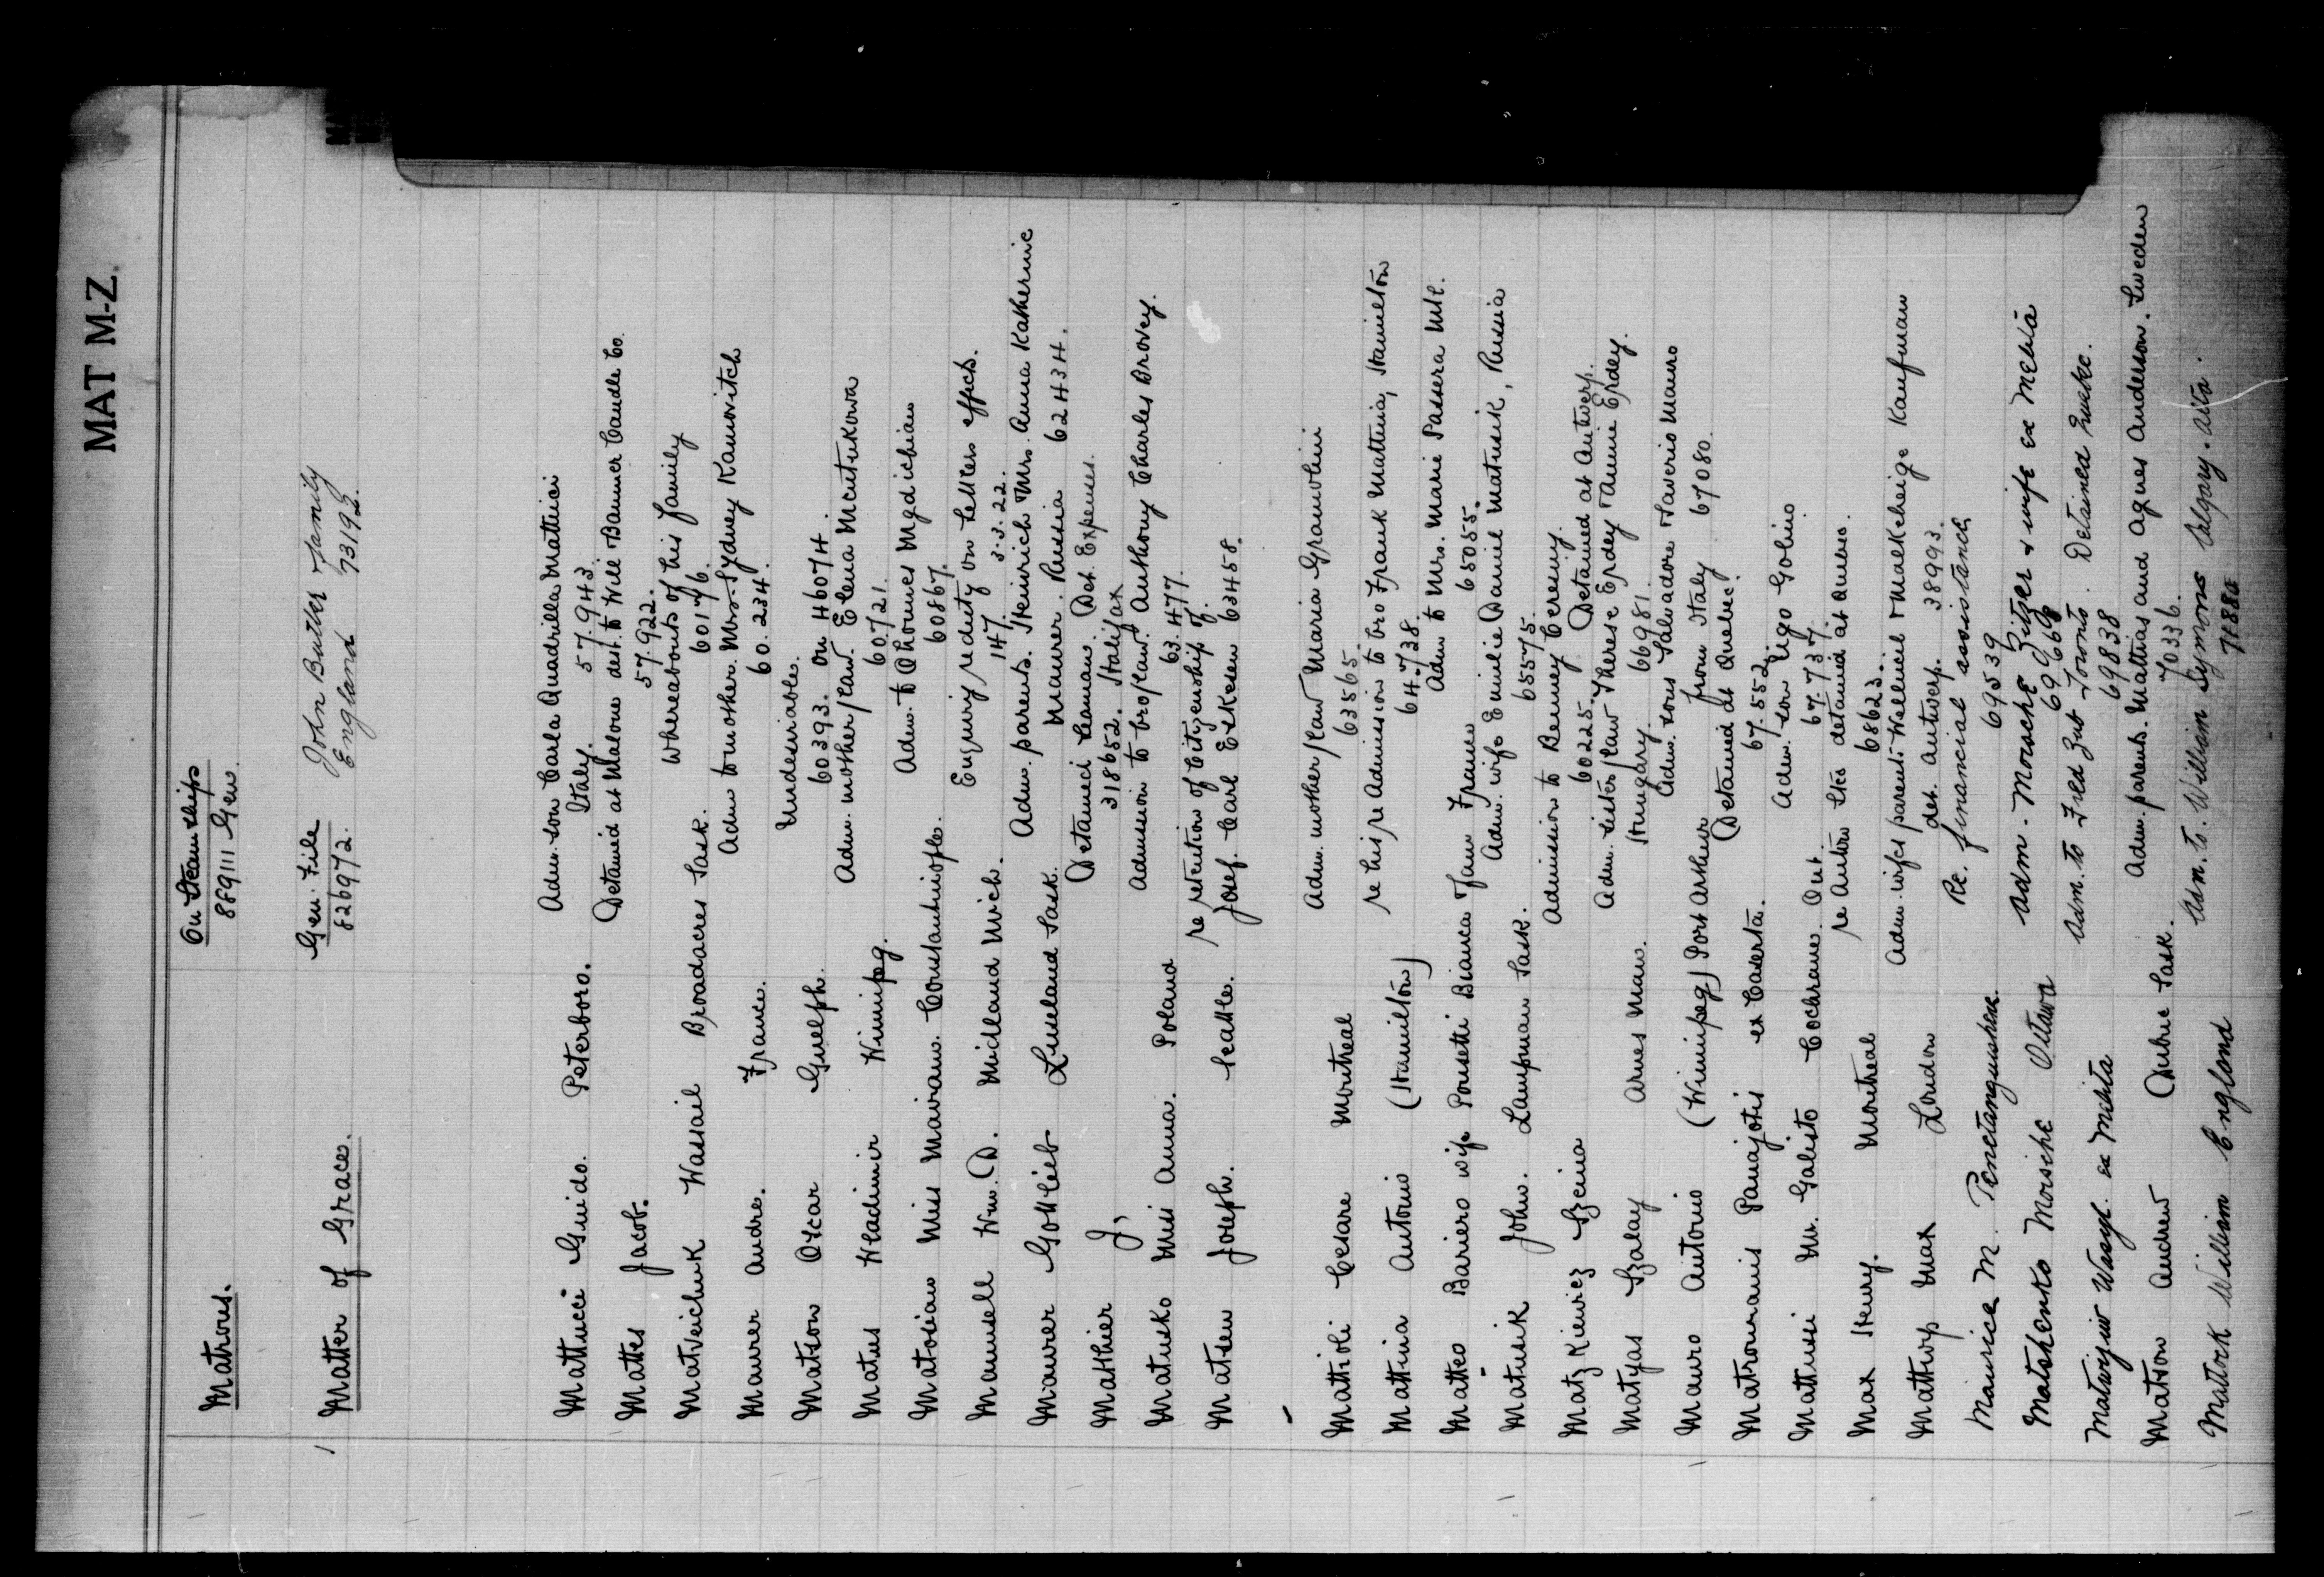 MAT M-Z.
Matrons. On Steamships
889111 Gen.
Matter of Grace. Gen. File John Butler Family
826972. England 73192.
Mattucci Guido. Peterboro. Adm. son Carla Quadrilla Mattucci
Italy. 57.943.
Mattes Jacob. Detained at Malone dest. to Will Banner Caudle Co.
57.922.
Matveichuk Wassail Broadacres Sask. Whereabouts of his family
60176.
Maurer Andre. France. Adm to mother. Mrs. Sydney Kamovitch
60.234.
Matson Oscar Guelph. Undesirable.
60393. on 46074.
Matus Wladimir Winnipeg. Adm. mother/law. Elena
60721.
Matosian Miss Mariam. Constantinople. Adm. to Ohannes Mgdichian
60867.
Maunsell Wm. D. Midland Mich. Enquiry re duty on settlers effects.
147. 3.3.22.
Maurer Gottlieb Luseland Sask. Adm. parents. Heinrich Mrs. Anna Katherine
Maurer. Russia 62434.
Matthier J, Detained Seaman Det. Expenses.
318652. Halifax
Matusko Miss Anna. Poland Admission to bro/law. Anthony Charles Brovey.
63.477.
Matsen Joseph. Seattle. re retention of Citizenship of.
Josef. Carl 63458.
Mattioli Cesare Montreal Adm. mother/law Maria
63565.
Mattina Antonio (Hamilton) re his re Admission to bro Frank Mattina, Hamilton
64.738.
Matteo Bariero wife Ponsetti Bianca Jann France Adm to Mrs. Marie Passera Mtl.
65055.
Matusik John. Lampman Sask. Adm. wife Emilie Daniel Matusik, Russia
65575.
Matzkiewicz Admission to
60225. Detained at Antwerp.
Matyas Szalay Arnes Man. Adm. sister/law Therese Erdey Annie Erdey.
Hungary. 66981.
Mauro Antonio (Winnipeg) Port Arthur Adm. sons Salvadore Saverio Mauro
from Italy 67080.
Matromanis Panajotis ex Caserta. Detained at Quebec.
67.552.
Mattiussi Mr. Galisto Cochrane Ont. Adm. son Ugo Golino
67.737.
Max Henry. Montreal re Anton detained at Quebec.
68623.
Matturp Max London Adm. wifes parents Kaufman
det. Antwerp. 38993.
Maurice M. Penetanguishene. Re. financial assistance
69539
Matshento Moische Ottawa Adm. Mosche Zitzer & wife ex Melita
69966
Matwyiw Wasyl. ex Melita Adm. to Fred Zub Toronto. Detained Quebec.
69838
Matson Andrew Dubuc Sask. Adm. parents. Mattias and Agnes Anderson. Sweden
70336.
Mattock William England Adm. to. William Symons Calgary. Alta.